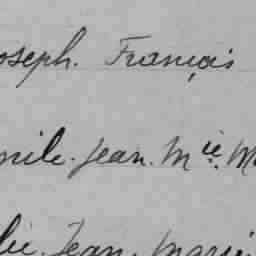 oseph. Français
mile. Jean. Mie. M
lie. Jean. Marie